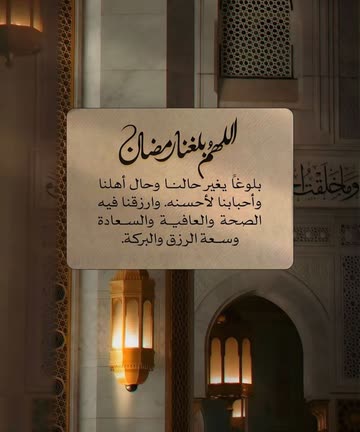 اللهم بلغنا رمضان
بلوغًا يغير حالنا وحال أهلنا
وأحبابنا لأحسنه، وارزقنا فيه
الصحة والعافية والسعادة
وسعة الرزق والبركة.
وما خلقت